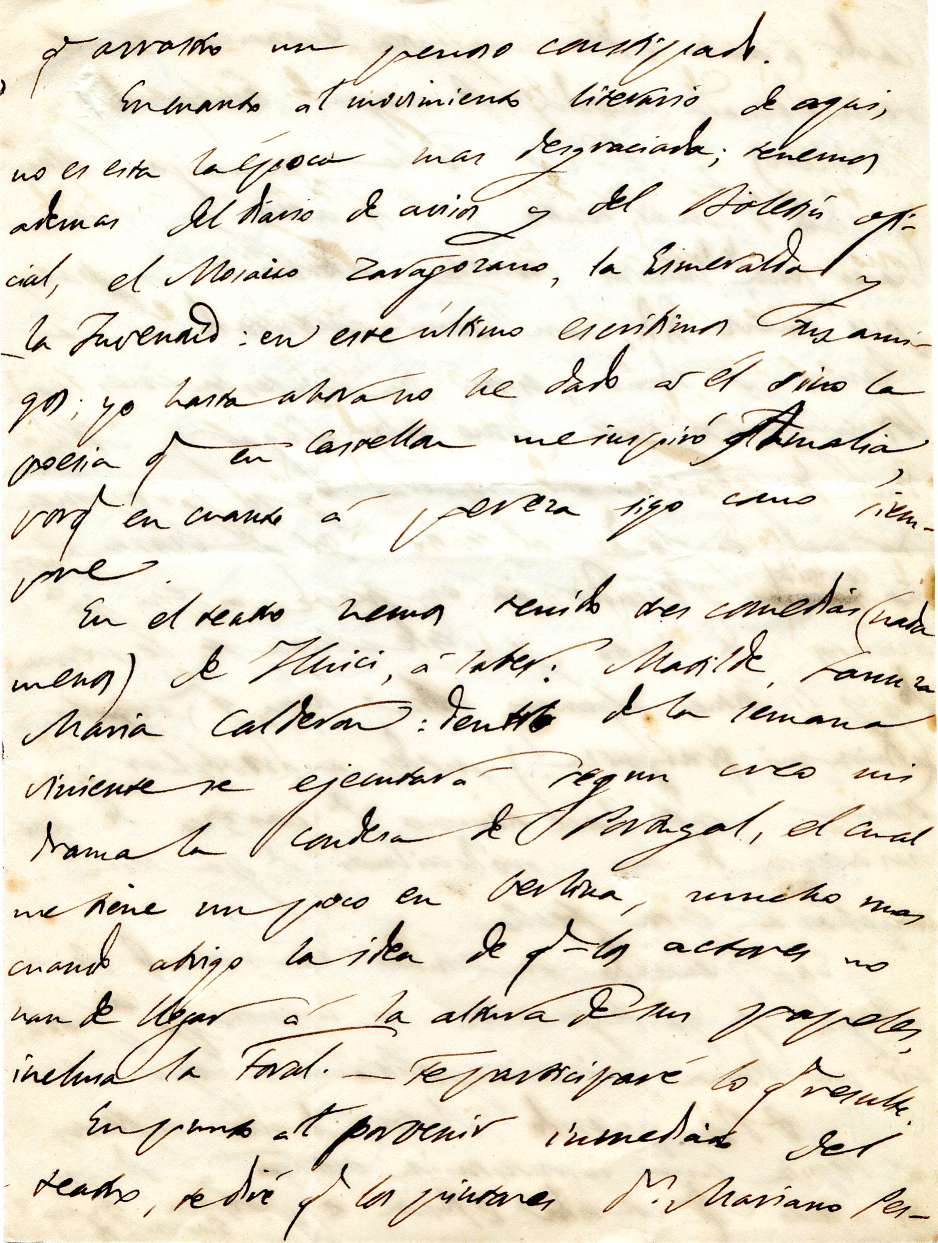 q arrastro un penoso constipado.
En cuanto al movimiento literario de aqui,
no es esta la época mas desgraciada; tenemos
ademas del diario de avisos y del Boletin ofi-
cial, el Mosaico Zaragozano, la Esmeralda y
la Juventud: en este último escribimos tus ami-
gos; yo hasta ahora no he dado á él sino la
poesia q en Castellon me inspiró Amalia,
porq en cuanto á pereza sigo como siem-
pre.
En el teatro hemos tenido tres comedias (nada
menos) de Huici, á saber: Matilde,
Maria Calderon: dentro d la semana
viniente se ejecutará segun creo mi
drama la Condesa de Portugal, el cual
me tiene un poco en berlina, mucho mas
cuando abrigo la idea de q los actores no
han de llegar á la altura de sus papeles,
inclusa la Toral. — Te participaré lo q resulte.
En punto al porvenir inmediato del
teatro, te diré q los pintores Dn. Mariano Pes-